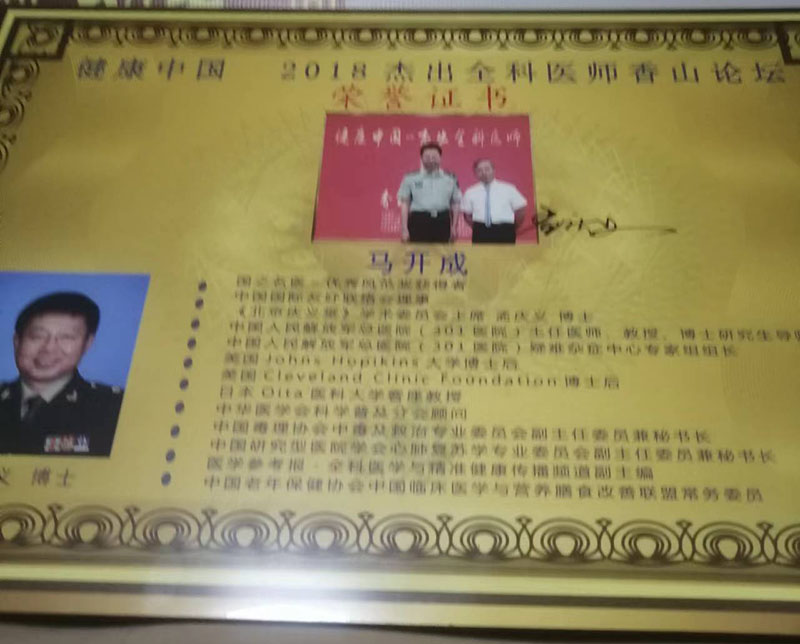 健康中国 2018杰出全科医师香山论坛
荣誉证书
健康中国-杰出全科医师
马开成
国之名医·优秀风范奖获得者
中国国际友好联络会理事
《北京庆义堂》学术委员会主席 孟庆义 博士
中国人民解放军总医院(301医院)主任医师、教授、博士研究生导师
中国人民解放军总医院(301医院)疑难杂症中心专家组组长
美国Johns Hopikins大学博士后
美国Cleveland Clinic Foundation博士后
日本Oita医科大学客座教授
中华医学会科学普及分会顾问
中国毒理协会中毒及救治专业委员会副主任委员兼秘书长
中国研究型医院学会心肺复苏学专业委员会副主任委员兼秘书长
医学参考报·全科医学与精准健康传播频道副主编
中国老年保健协会中国临床医学与营养膳食改善联盟常务委员
义 博士